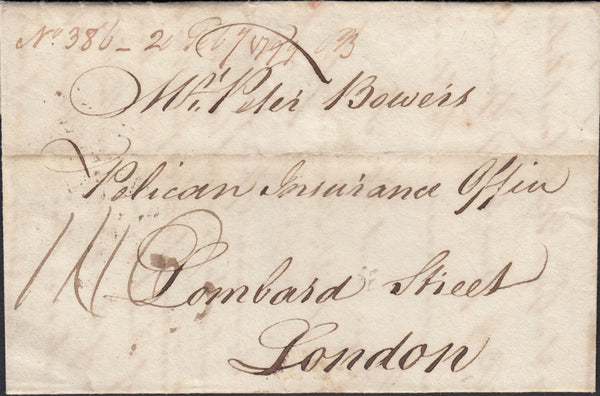 No. 386 - 2
Mr. Peter Bowers
Pelican Insurance Office
Lombard Street
London